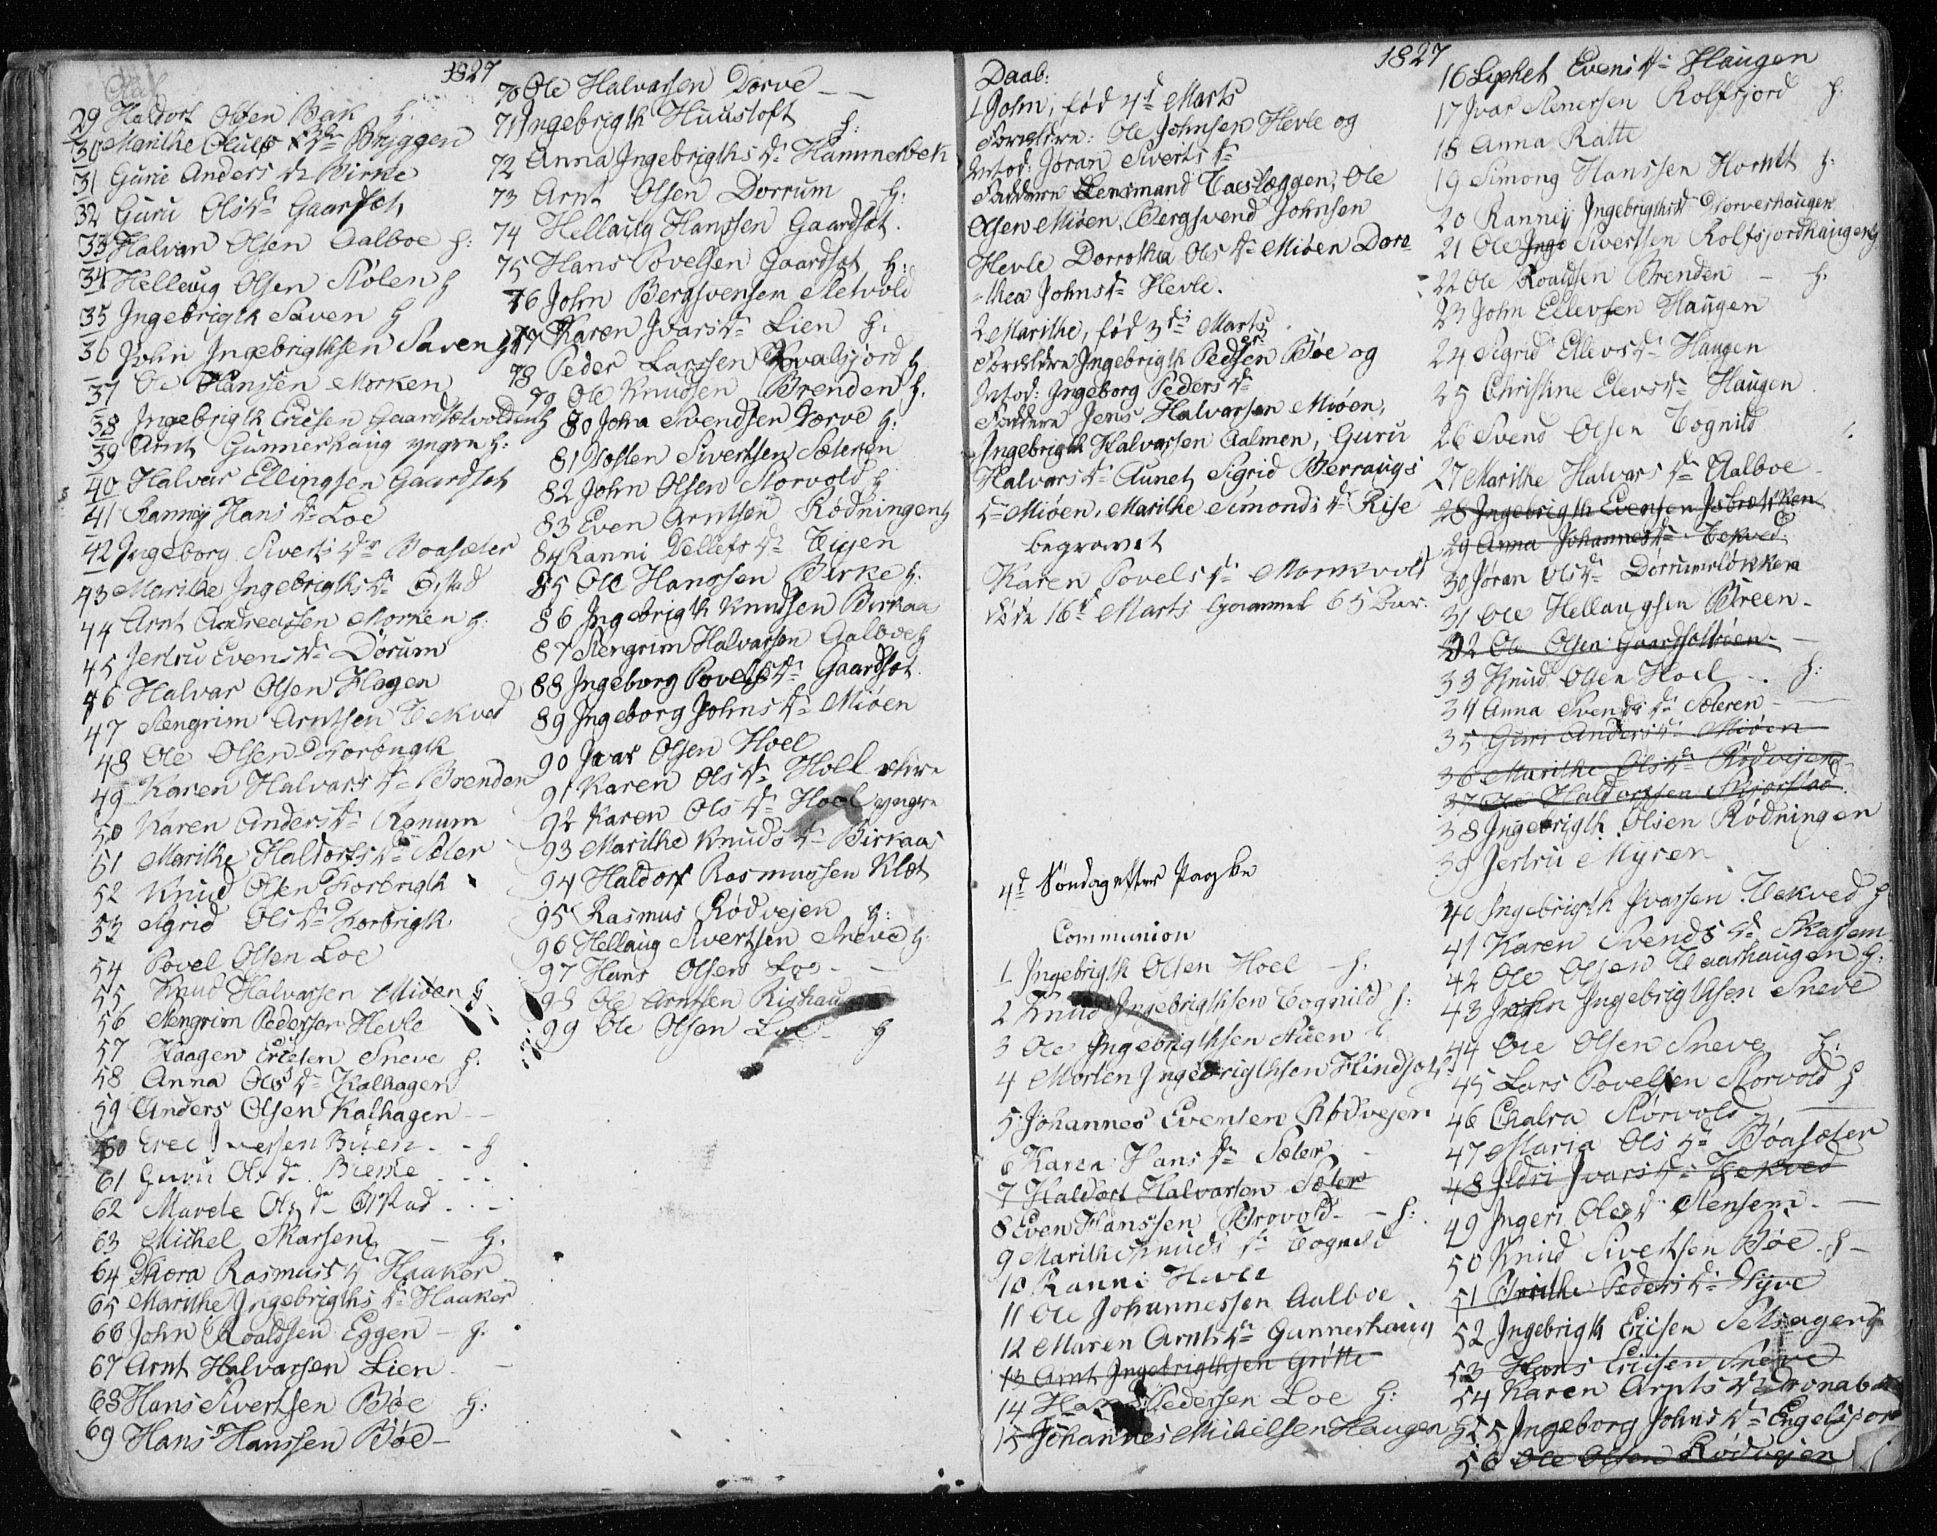 1827
29 Haldort Olsen Bak h:
30 Marithe Bryggen
31 Gurie Anders dr Birke
32 Guru Olsdr Gaardsøt
33 Halvar Olsen Aalboe h:
34 Hellevig Olsen Stølen h
35 Ingebrigth Saven h
36 John Ingebrigthsen Saven h
37 Ole Hanssen Morken
38 Ingebrigth Ericsen Gaardsætvolden h
39 Arnt Gunnerhaug yngre h:
40 Halvar Ellingsen Gaardsøt
41 Ranney Hans dr Loe
42 Ingeborg Siverts dr Boasæter
43 Marithe Ingebrigths dr
44 Arnt Andreassen Morken h:
45 Jertru Evens dr Dørum
46 Halvar Olsen Hagen
47 Stengrim Arntsen Tekved
48 Ole Olsen Torbrigth
49 Karen Halvars dr Brenden
50 Karen Anders dr Ranum
51 Marithe Haldorts dr Sæter
52 Knud Olsen Torbrigth
53 Sigrid Ols dr Torbrigth
54 Povel Olsen Loe
55 Knud Halvarsen Miøen h
56 Stengrim Pedersen Hevle
57 Haagen Ericsen Sneve h:
58 Anna Ols dr Kalhagen
59 Anders Olsen Kalhagen
60 Erec Iversen Buen - h
61 Guru Ols dr Bierke
62 Marete Ols dr
63 Michel Skarsem - h:
64 Thora Rasmus dr Haaker
65 Marithe Ingebrigths dr Haaker
66 John Roaldsen Eggen - h.
67 Arnt Halvarsen Lien
68 Hans Sivertsen Bøe h:
69 Hans Hanssen Bøe -
70 Ole Halvarsen Dorve
71 Ingebrigth Huustoft h:
72 Anna Ingebrigths dr Hammerbek
73 Arnt Olsen Dorrum h:
74 Hellaug Hanssen Gaardsøt.
75 Hans Povelsen Gaardsøt h:
76 John Bergsvensen Sletvold
77 Karen Ivars dr Lien h:
78 Peder Larssen Kvalsjord h
79 Ole Knudsen Brenden h.
80 John Svendsen Dorve h:
81 Tosten Sivertsen Sæteren
82 John Olsen Storvold h
83 Even Arntsen Rødningen h
84 Ranni Dellefs dr
85 Ole Hanssen Birke h:
86 Ingebrigth Knudsen Birkaa
87 Stengrim Halvarsen Aalboe h
88 Ingeborg Povels dr Gaardsøt
89 Ingeborg Johns dr Miøen
90 Ivar Olsen Hoel
91 Karen Ols dr Hoel
92 Karen Ols dr Hoel yngre
93 Marithe Knuds dr Birkaa
94 Haldort Rasmussen Klet
95 Rasmus Rødvejen h:
96 Hellaug Sivertsen Sneve h.
97 Hans Olsen Loe -
98 Ole Arntsen Rishaug
99 Ole Olsen Loe - h
1827
Daab:
1 John, fød 4d Marts
Foreldre: Ole Johnsen Hevle og
Joran Siverts dr
Faddere Lensmand Tæslæggen, Ole
Olsen Miøen, Bergsvend Johnsen
Hevle Dorrothea Ols dr Miøen Doro
-thea Johns dr Hevle.
2 Marithe, fød 3die Marts
Foreldre Ingebrigth Pedersen Bøe og
Ingeborg Peders dr
Faddere Jens Halvarsen Miøen,
Ingebrigth Halvarsen Aalmen, Guru
Halvars dr Aunet, Sigrid Berraugs
dr Miøen, Marithe Simonds dr Rise
begravet
Karen Povels dr Monkvold
døde 16d Marts Gammel 65 Aar.
4d Søndag efter Paaske
Communion
1 Ingebrigth Olsen Hoel - h:
2 Knud Ingebrigthsen Tognild h:
3 Ole Ingebrigthsen
4 Morten Ingebrigthsen Hindsøt
5 Johannes Evensen Rødvejen
6 Karen Hans dr Sæter
7 Haldort Halvarsen Sæter
8 Even Hanssen Brovold - h:
9 Marith Knuds dr Tognild
10 Ranni Hevle
11 Ole Johannessen Aalboe
12 Maren Arnts dr Gunnerhaug
13 Arnt Ingebrigthsen Grøtte
14 Hans Pedersen Loe h:
15 Johannes Michelsen Haugen h
16 Evens dr Haugen
17 Ivar Stenersen Rolfsjord h:
18 Anna Ratte
19 Simong Hanssen h:
20 Ranney Ingebrigths dr Dorveshaugen
21 Ole Sivertsen Rolfsjordhaugen h
22 Ole Roaldsen Brenden - h:
23 John Ellevsen Haugen
24 Sigrid Ellevs dr Haugen
25 Christine Elevs dr Haugen
26 Svend Olsen Tognild
27 Marithe Halvars dr Aalboe
28 Ingebrigth Evensen
29 Anna Johannes dr Tekved
30 Joran Ols dr Dorrumsløkken
31 Ole Hellaugsen Breen -
32 Ole Olsen Gaardsøtmoen
33 Knud Olsen Hoel - h:
34 Anna Svends dr Sæteren -
35 Guri Anders dr Miøen
36 Marithe Ols dr Rødvejen
37 Ole Haldorsen
38 Ingebrigth Olsen Rødningen
39 Jertru Myren
40 Ingebrigth Ivarsen Tekved h
41 Karen Svends dr Skarsem
42 Ole Olsen h:
43 John Ingebrigthsen Sneve
44 Ole Olsen Sneve h:
45 Lars Povelsen Storvold h
46 Storvold
47 Maria Ols dr Boasæter
48 Ildri Ivars dr Tekved
49 Ingeri Ols dr Stensem -
50 Knud Sivertsen Bøe h -
51 Peders dr
52 Ingebrigth Ericsen
53 Hans Ericsen Sneve
54 Karen Arnts dr
55 Ingeborg Johns dr Engelsjor
56 Ole Olsen Rødvejen